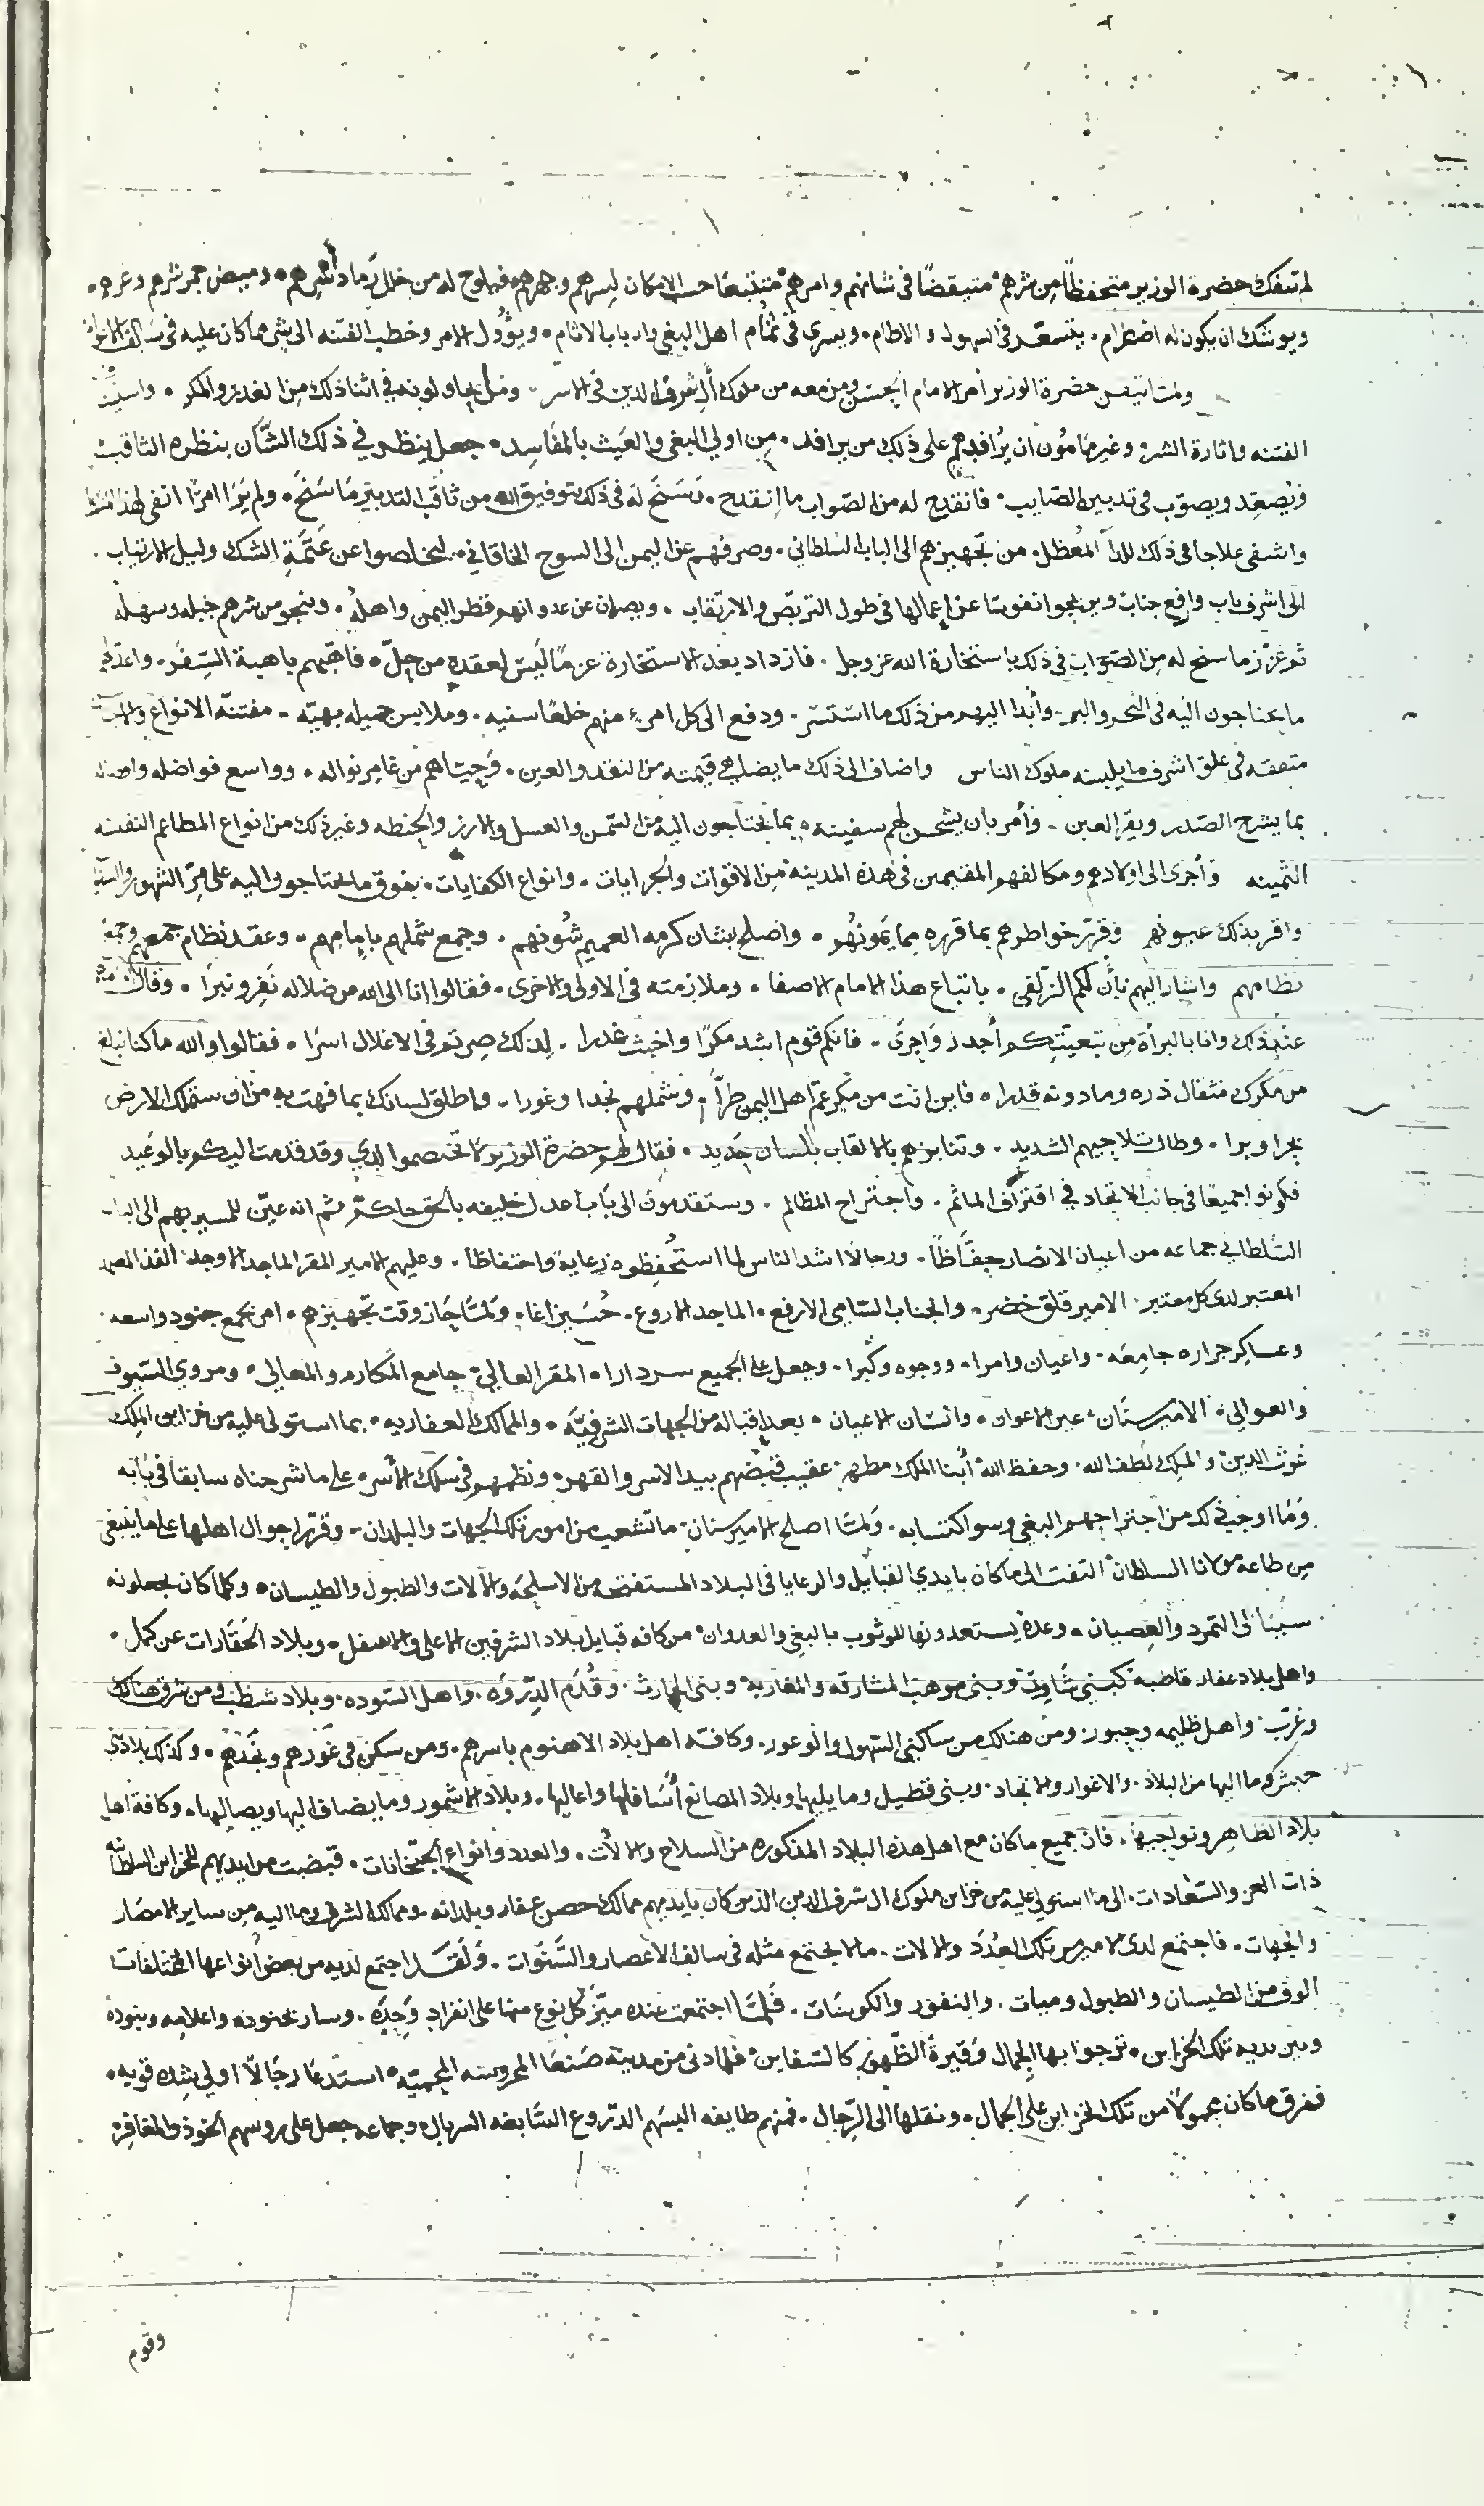 لم تنفك حضرة الوزير متحفظًا من شرهم متيقضًا في شانهم وامرهم متتبعًا حسب الامكان لسرهم وجهرهم فيلوح له من خلل رماد وميض جمر شرهم
ويوشك ان يكون له اضطرام يتسعر في السهول والاطام ويسري في اهل البغي وارباب الاثام ويؤول الامر وخطب الفتنه الى شي ما كان عليه في سالف
ولما تيقن حضرة الوزير امر الامام الحسن ومن معه من ملوك آل شرف الدين في الاسر وما يحاولونه في اثنا ذلك من الغدر والمكر
الفتنه واثارة الشر وغير مامون ان يرافدهم على ذلك من يرافد من اولي البغي والعيث بالمفاسد جعل ينظر في ذلك الشان بنظره الثاقب
ويصعد ويصوب في تدبيره الصايب فانقدح له من الصواب ما انقدح وسنح له في ذلك بتوفيق الله من ثاقب التدبير ما سنح ولم ير امرًا انفى لهذا
واشفى علاجا في ذلك للدآ المعظل من تجهيزهم الى الباب السلطاني وصرفهم عن اليمن الى السوح الخاقاني ليخلصوا عن عتمة الشك وليل الارتياب
الى اشرف باب وارفع جناب ويريحوا نفوسًا عن اعمالها في طول التربص والارتقاب ويصان عن عدوانهم قطر اليمن واهله وينجو من شرهم جبله وسهله
ثم عزز ما سنح له من الصواب في ذلك باستخارة الله عز وجل فازداد بعد الاستخارة عزمًا ليس لعقده من حل فاهبهم باهبة السفر
ما يحتاجون اليه في البحر والبر وأبدا اليهم من ذلك ما استسر ودفع الى كل امرء منهم خلعًا سنيه وملابس جميله بهيه مفتنة الانواع
في علق اشرف ما يلبسه ملوك الناس واضاف الى ذلك ما يضاهي قيمته من النقد والعين وحباهم من غامر نواله وواسع فواضله
بما يشرح الصدر ويقر العين وأمر بان يشحن لهم سفينه بما يحتاجون اليه من السمن والعسل والارز والحنطه وغير ذلك من انواع المطاعم
الثمينه وأجرى الى اولادهم ومكالفهم المقيمين في هذه المدينة من الاقوات والجرايات وانواع الكفايات بفوق ما يحتاجون اليه على مر الشهور
واقر بذلك عيونهم وقرر خواطرهم بما قرره مما يمونهم واصلح بشان كرمه العميم شونهم وجمع شملهم بامامهم وعقد نظام جمعهم
نظامهم واشار اليهم بأن لكم الزلفى باتباع هذا الامام الاصفا وملازمته في الاولى والاخرى فقالوا انا الى الله من ضلاله نفر ونبرا وقال
عند ذلك وانا بالبرأة من تبعيتكم أجدر وأحرى فانكم قوم اشد مكرًا واخبث غدرا لذلك صرتم في الاغلال اسرا فقالوا والله ما كنا نبلغ
من مكرك مثقال ذره وما دونه قدرا فاين انت من مكر عم اهل اليمن طرًّا وشملهم نجدا وغورا واطلق لسانك بما فهت به من انك ستملك الارض
بحرا وبرا وطال تلاحيهم الشديد وتنابزهم بالالقاب بلسان حديد فقال لهم حضرة الوزير لا تختصموا لدي وقد قدمت اليكم بالوعيد
فكونوا جميعًا في جانب الاتحاد في اقتراف الماثم واجتراح المظالم وستقدمون الى باب اعدل خليفه بالحق حاكم ثم انه عين للمسير بهم الى الباب
السلطاني جماعه من اعيان الانصار حفَّاظًا ورجالًا اشد الناس لما استحفظوه رعاية واحتفاظا وعليهم الامير المقر الماجد الاوحد
المعتبر لدى كل معتبر الامير قلق خضر والجناب السامي الارفع الماجد الاروع حسين اغا ولما حان وقت تجهيزهم امر بجمع جنود واسعه
وعساكر جراره جامعه واعيان وامرا ووجوه وكبرا وجعل على الجميع سردارا المقر العالي جامع المكارم والمعالي ومروي السيوف
والعوالي الامير سنان عين الاعوان وانسان الاعيان بعد اقباله من الجهات الشرفيه والممالك العفاريه بما استولى عليه من خزاين الملك
غوث الدين والملك لطف الله وحفظ الله أبنا الملك مطهر عقيب قبضهم بيد الاسر والقهر ونظمهم في سلك الأسر على ما شرحناه سابقا في بابه
وما اوجب ذلك من اجتراحهم البغي وسو اكتسابه ولما اصلح الامير سنان ما تشعب من امور تلك الجهات والبلدان وقرر احوال اهلها على ما ينبغي
من طاعة مولانا السلطان التفت الى ما كان بايدي القبايل والرعايا في البلاد المستفتحه من الاسلحه والالات والطبول والطيسان وكلما كان يجعلونه
سببًا الى التمرد والعصيان وعدة يستعدونها للوثوب بالبغي والعدوان من كافه قبايل بلاد الشرفين الاعلى والاسفل وبلاد الحقارات عن كمل
واهل بلاد عفار قاطبة كبني شاور وبني موهب المشارقه والمغاربه وبني الحارث وقُدَم الذروه واهل السوده وبلاد شظب ومن شرق هناك
وغرب واهل ظليمه وحبور ومن هنالك من ساكني السهول والوعور وكافة اهل بلاد الاهنوم باسرهم ومن سكن في غورهم ونجدهم وكذلك بلاد بني
حبش وما اليها من البلاد والاغوار والانجاد وبني قطيل وما يليها وبلاد المصانع أسافلها واعاليها وبلاد الاشمور وما يضاف اليها ويصاليها وكافة اهل
بلاد الظاهر ونواحيها فان جميع ما كان مع اهل هذه البلاد المذكوره من السلاح والالات والعدد وانواع الجبخانات قبضت من ايديهم للخزاين السلطانيه
ذات العز والسعادات الى ما استولي عليه من خزاين ملوك ال شرف الدين الذين كان بايديهم ممالك حصن عفار وبلدانه وممالك الشرف وما اليه من ساير الامصار
والجهات فاجتمع لدى الامير من تلك العُدَد والالات ما لا يجتمع مثله في سالف الاعصار والسنوات ولقد اجتمع لديه من بعض انواعها المختلفات
الوف من الطيسان والطبول وميات والنفور والكوسات فلما اجتمعت عنده ميز كل نوع منها على انفراد وحده وسار بجنوده واعلامه وبنوده
وبين يديه تلك الخزاين تزجوا بها الجمال وقيرة الظهور كالسفاين فلما دنى من مدينة صنعا المحروسه المحميه استدعا رجالًا اولي شده قويه
ففرق ما كان محمولًا من تلك الخزاين على الجمال ونقلها الى الرجال فمنهم طايفه البسهم الدروع السابغه السربال وجماعه جعل على روسهم الخوذ والمغافر
وقوم